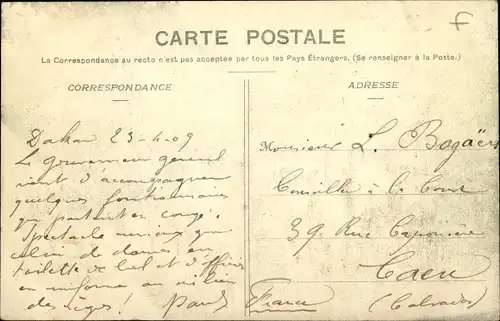 F
CARTE POSTALE
La Correspondance au recto n'est pas acceptée par tous les Pays Étrangers. (Se renseigner à la Poste.)
CORRESPONDANCE
ADRESSE
Dakar 23-4-09
Le gouverneur général
vient d'accompagner
quelques fonctionnaires
qui partent en congé.
Spectacle curieux que
celui de dames en
toilette de bal et d'officiers
en uniforme au milieu
des nègres! Paul
Monsieur L. Bogaërs
Conseiller à la Cour
39 Rue Caponière
Caen
France (Calvados)